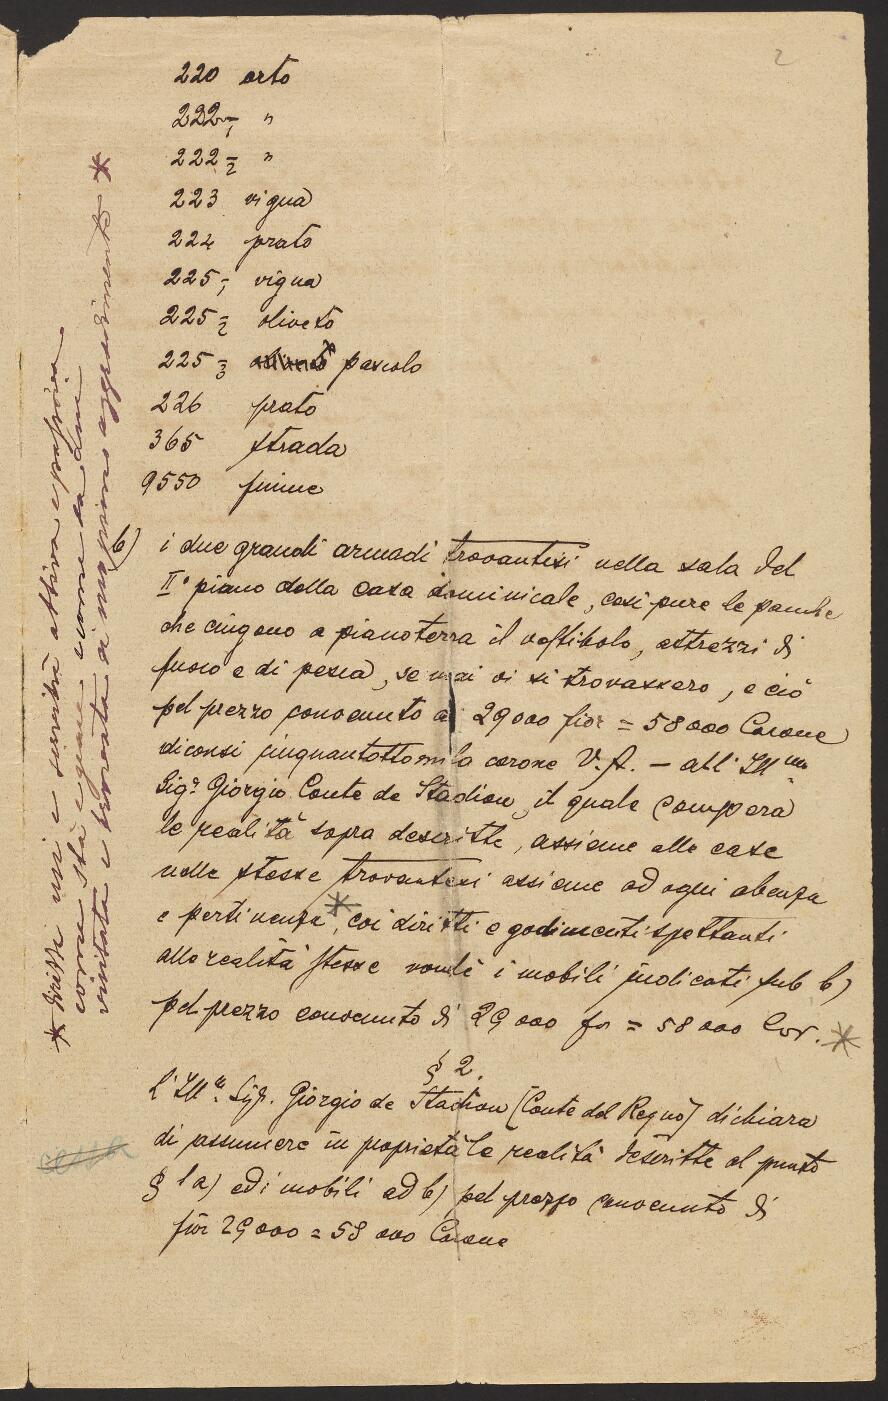 2
220 orto
222/1 "
222/2 "
223 vigna
224 prato
225/1 vigna
225/2 oliveto
225/3 pascolo
226 prato
365 strada
9550 fiume
b) i due grandi armadi trovantisi nella sala del
II° piano della casa dominicale, così pure le panche
che cingono a pianoterra il vestibolo, attrezzi di
fuoco e di pesca, se mai vi si trovassero, e ciò
pel prezzo convenuto di 29000 fior = 58000 Corone
diconsi cinquantottomila corone V.A. – all' Ill mo
Sigr. Giorgio Conte de Stadion, il quale compera
le realità sopra descritte, assieme alle case
nelle stesse trovantesi assieme ad ogni
e pertinenza *, coi diritti e godimenti spettanti
alle realità stesse nonchè i mobili indicati sub b)
pel prezzo convenuto di 29000 fior = 58000 Cor. *
§ 2.
L'Ill mo. Sigr. Giorgio de Stadion (Conte del Regno) dichiara
di assumere in proprietà le realità descritte al punto
§ 1 a) ed i mobili ad b) pel prezzo convenuto di
fior 29000 = 58000 Corone
* diritti usi e servitù attiva e passiva
come stà e giace, come la
visitata e trovata di suo pieno aggradimento *